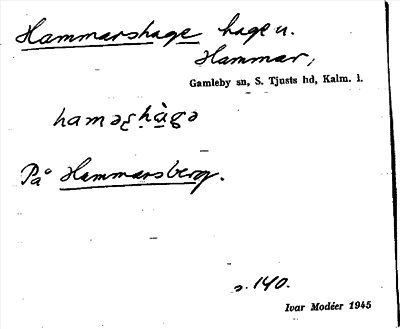 Hammarshage hage u.
Hammar,
Gamleby sn, S. Tjusts hd, Kalm. l.
På Hammarsberg.
s. 140.
Ivar Modéer 1945